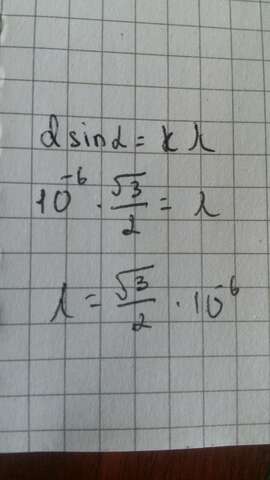 d sin α = k λ
10⁻⁶ · √3/2 = λ
λ = √3/2 · 10⁻⁶